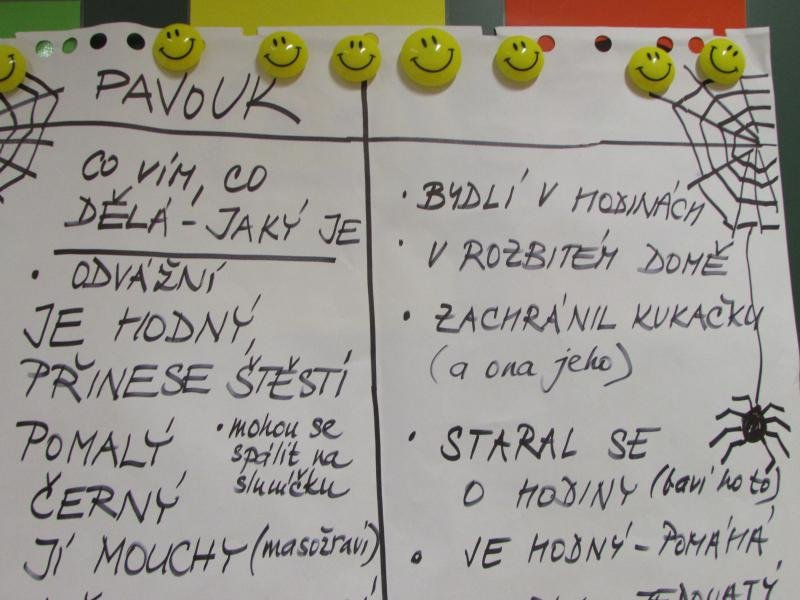 PAVOUK
CO VÍM, CO
DĚLÁ - JAKÝ JE
• ODVÁŽNÍ
JE HODNÝ,
PŘINESE ŠTĚSTÍ
POMALÝ
• mohou se
spálit na
sluníčku
ČERNÝ
JÍ MOUCHY (masožraví)
• BYDLÍ V HODINÁCH
• V ROZBITÉM DOMĚ
• ZACHRÁNIL KUKAČKU
(a ona jeho)
• STARAL SE
O HODINY (baví ho to)
• JE HODNÝ - POMÁHÁ
JEDOVATÝ